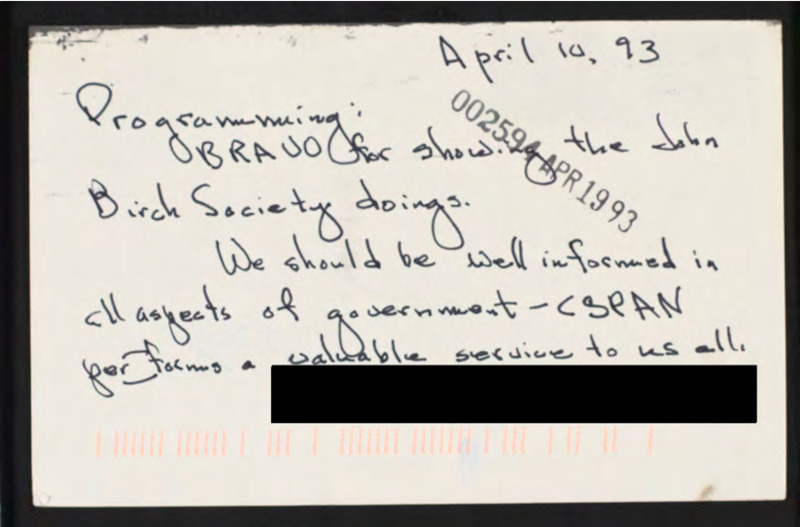 April 10, 93
Programming:
BRAVO for showing the John
Birch Society doings.
002594 APR 1993
We should be well informed in
all aspects of government - CSPAN
performs a valuable service to us all.